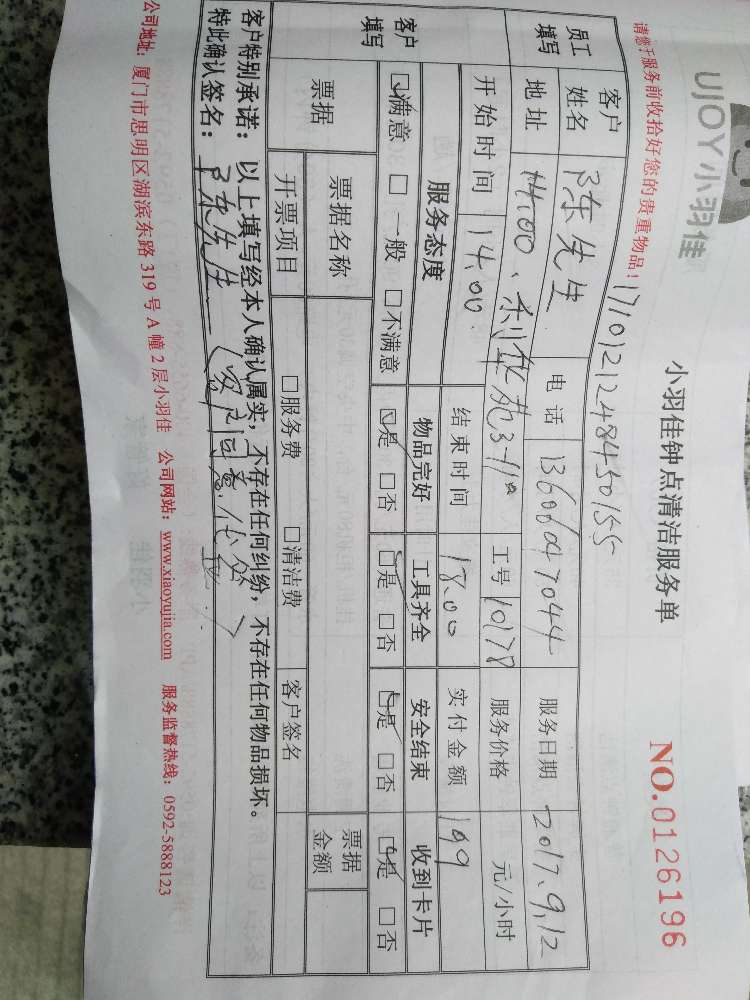 UJOY小羽佳
小羽佳钟点清洁服务单
NO.0126196
请您于服务前收拾好您的贵重物品!
171012124845015
员工填写
客户姓名 陈先生 电话 13606047044 服务日期 2017.9.12
地址 3-11 工号 10178 服务价格 元/小时
开始时间 14.00 结束时间 18.00 实付金额 199
客户填写
服务态度 物品完好 工具齐全 安全结束 收到卡片
☑满意 □一般 □不满意 ☑是 □否 ☑是 □否 ☑是 □否 ☑是 □否
票据 票据名称 票据金额
开票项目 □服务费 □清洁费 客户签名
客户特别承诺:以上填写经本人确认属实,不存在任何纠纷,不存在任何物品损坏。
特此确认签名:陈先生(客户同意代签)
公司地址:厦门市思明区湖滨东路319号A幢2层小羽佳 公司网站:www.xiaoyujia.com 服务监督热线:0592-5888123